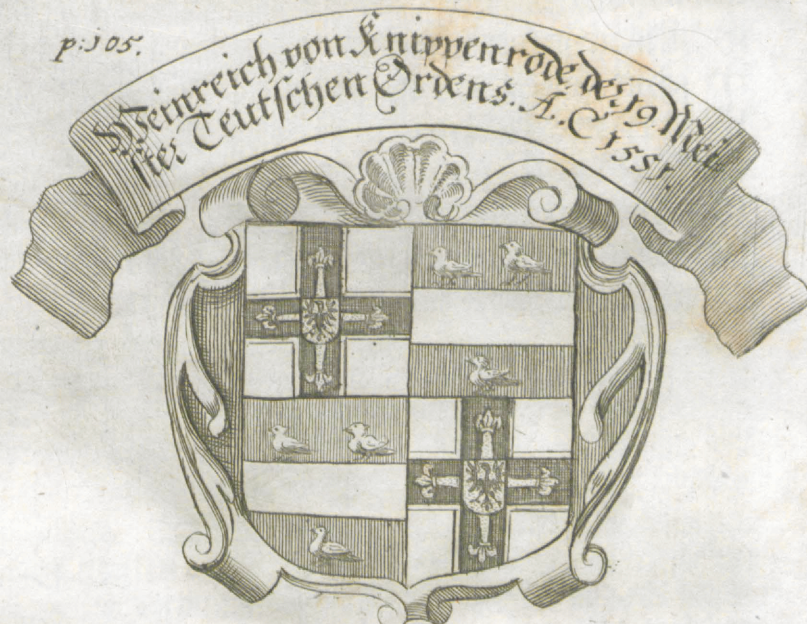 p:105.
Weinreich von Knippenrode, der 19. Mei-
ster Teutschen Ordens. A. C 1551.